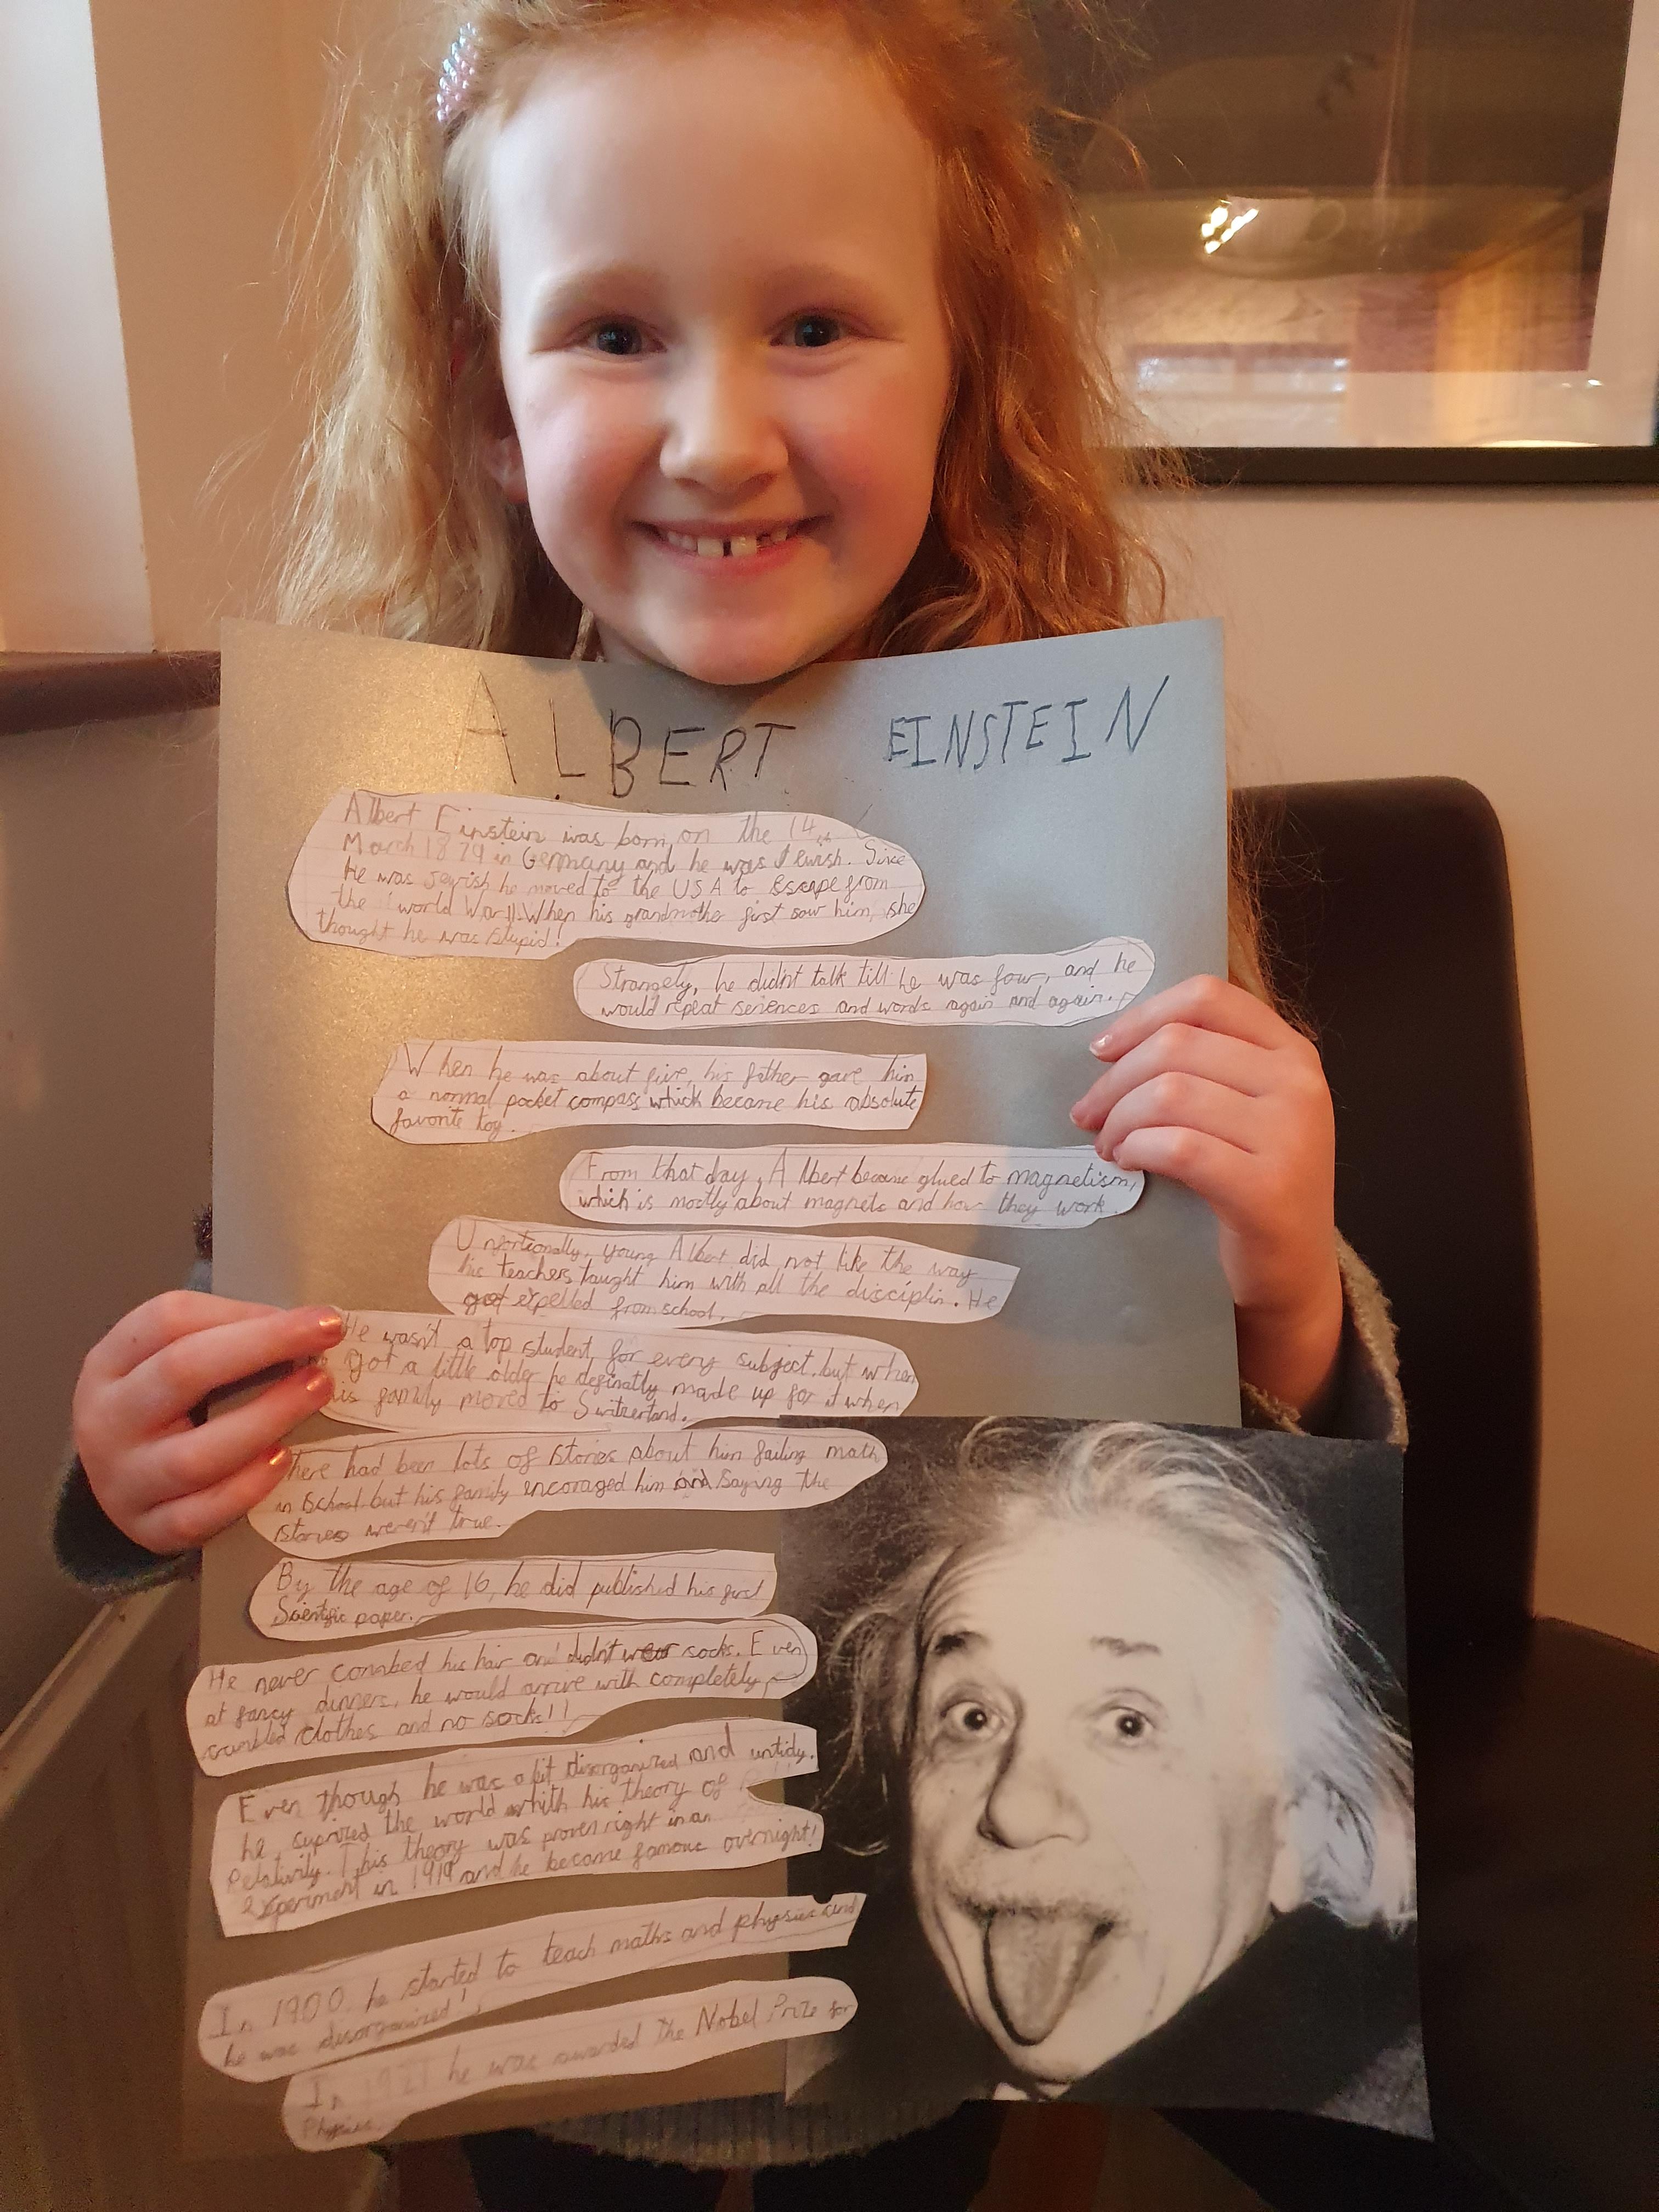 ALBERT EINSTEIN
Albert Einstein was born on the 14th
March 1879 in Germany and he was Jewish. Sinse
He was Jewish he moved to the USA to Escape from
the world War II. When his grandmother first saw him, she
thought he was stupid!
Strangely, he didn't talk till he was four, and he
would repeat senences and words again and again.
When he was about five, his father gave him
a normal pocket compass which became his absolute
favorite toy.
From that day, Albert became glued to magnetism,
which is mostly about magnets and how they work.
Unfortionally, young Albert did not like the way
his teachers taught him with all the disciplin. He
got expelled from school.
He wasn't a top student for every subject. but when
got a little older he definatly made up for it when
his family moved to Switzerland.
There had been lots of stories about him failing math
in school but his family encoraged him and saying the
stories weren't true.
By the age of 16, he did published his first
Scientific paper.
He never combed his hair and didn't wear socks. Even
at fancy dinners, he would arrive with completely
crumbled clothes and no socks!!
Even though he was a bit disorganized and untidy.
he suprized the world whith his theory of
Relativity. This theory was proven right in an
Experiment in 1919 and he became famouc overnight!
In 1900, he started to teach maths and physics and
he was disorganized!
In 1921 he was awarded the Nobel Prize for
Physics.